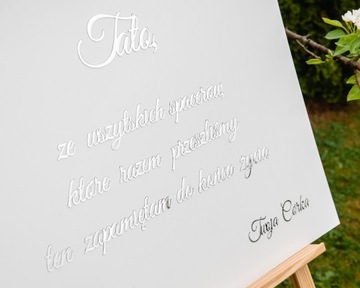 Tato,
ze wszystkich spacerów,
które razem przeszliśmy
ten zapamiętam do końca życia.
Twoja Córka